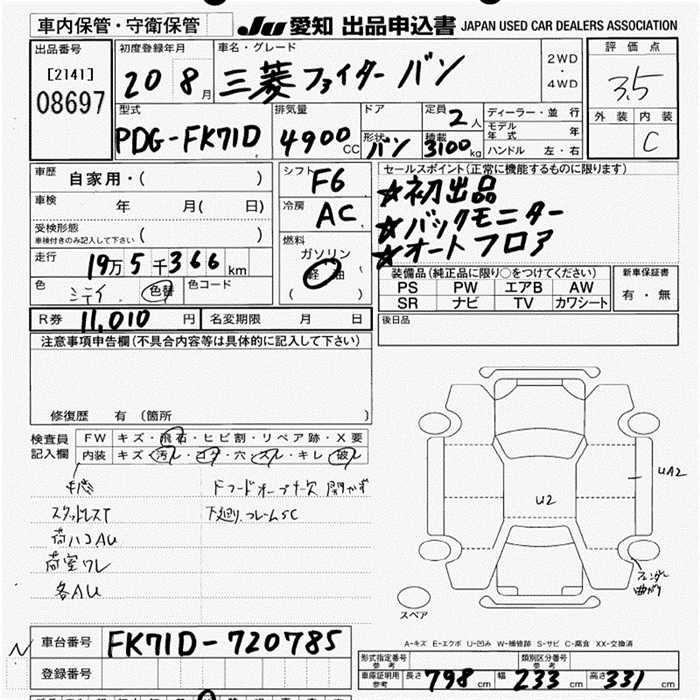 車内保管・守衛保管 JU 愛知 出品申込書 JAPAN USED CAR DEALERS ASSOCIATION
出品番号 初度登録年月 車名・グレード 評価点
[2141] 20 8月 三菱 ファイター バン 2WD・4WD 3.5
08697
型式 排気量 ドア 定員 2人 ディーラー・並行 外装 内装
PDG-FK71D 4900CC 形状 バン 積載 3100kg モデル年式 年 C
ハンドル 左・右
車歴 自家用・( ) シフト F6 セールスポイント(正常に機能するものに限ります)
車検 年 月( 日) 冷房 AC ★初出品
受検形態 車検付きのみ記入して下さい ( ) ★バックモニター
走行 19万5千366km 燃料 ガソリン 軽油 ( ) ★オートフロア
色 シテイ 色替 色コード 装備品(純正品に限り○をつけてください) 新車保証書
PS PW エアB AW 有・無
SR ナビ TV カワシート
R券 11,010円 名変期限 月 日 後日品
注意事項申告欄(不具合内容等は具体的に記入して下さい)
修復歴 有(箇所 )
検査員記入欄 FW キズ・飛石・ヒビ割・リペア跡・X要
内装 キズ・汚レ・コゲ・穴・スレ・キレ・破レ
スタッドレスT 下廻り、フレームSC
荷ハコAU
荷室ワレ
各AU
U2
UA2
フェンダー曲がり
スペア
A-キズ E-エクボ U-凹み W-補修跡 S-サビ C-腐食 XX-交換済
車台番号 FK71D-720785
登録番号
形式指定番号 参考 類別区分番号 参考
車庫証明用 参考 長さ 798cm 幅 233cm 高さ 331cm